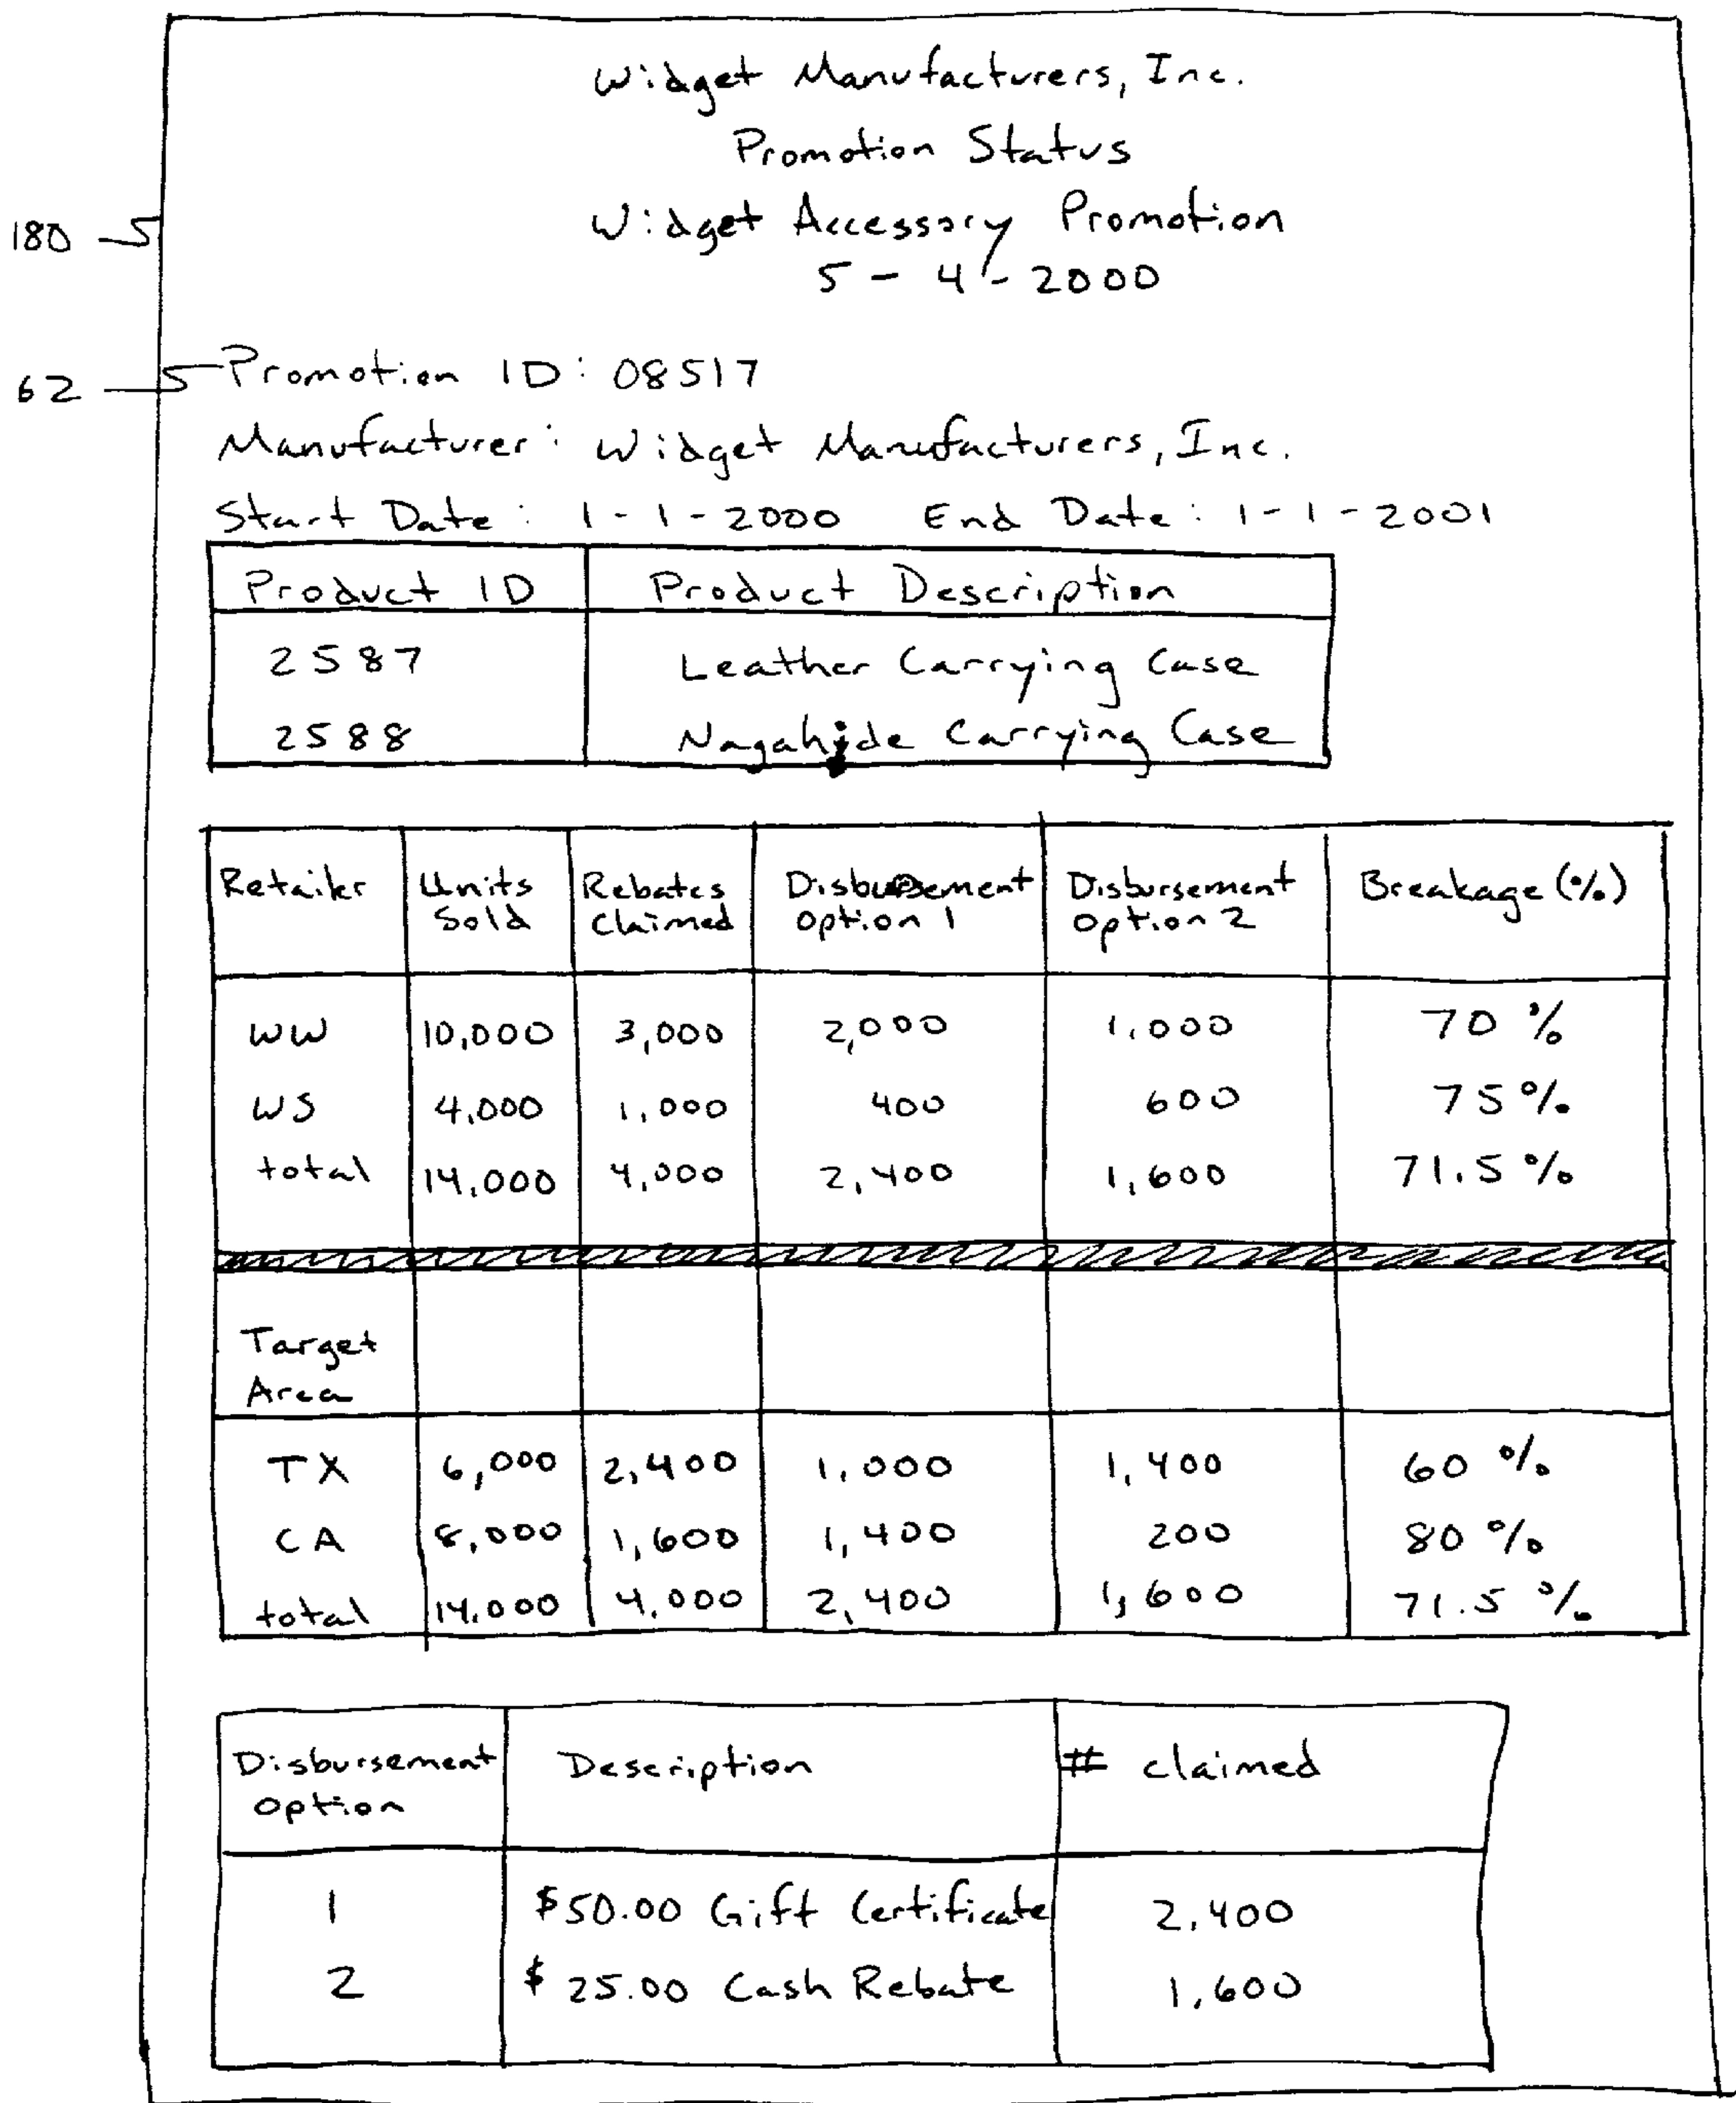 Widget Manufacturers, Inc.
Promotion Status
Widget Accessory Promotion
5 - 4 - 2000
180
62
Promotion ID: 08517
Manufacturer: Widget Manufacturers, Inc.
Start Date: 1 - 1 - 2000 End Date: 1 - 1 - 2001
Product ID Product Description
2587 Leather Carrying Case
2588 Nagahide Carrying Case
Retailer Units Sold Rebates Claimed Disbursement Option 1 Disbursement Option 2 Breakage (%)
WW 10,000 3,000 2,000 1,000 70 %
WS 4,000 1,000 400 600 75 %
total 14,000 4,000 2,400 1,600 71.5 %
Target
Area
TX 6,000 2,400 1,000 1,400 60 %
CA 8,000 1,600 1,400 200 80 %
total 14,000 4,000 2,400 1,600 71.5 %
Disbursement Option Description # claimed
1 $50.00 Gift Certificate 2,400
2 $25.00 Cash Rebate 1,600